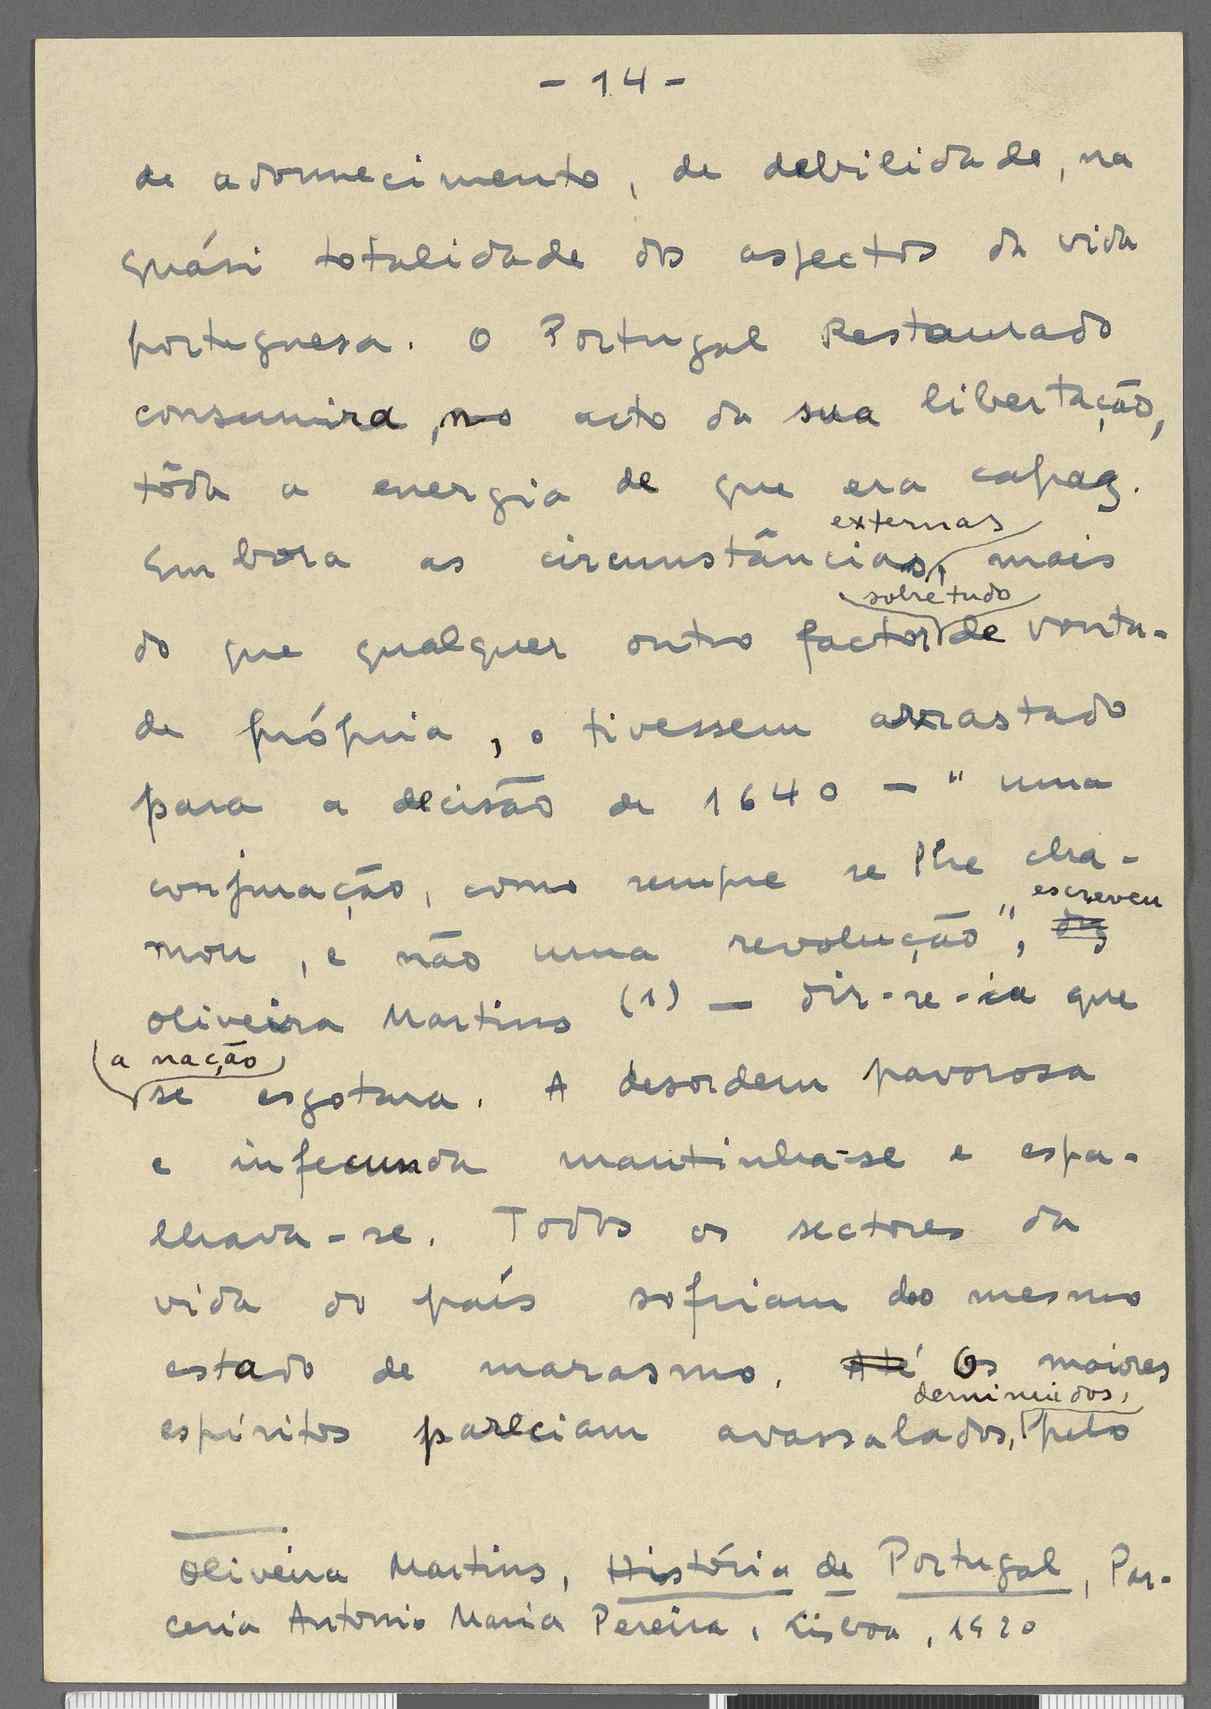 - 14 -
de adormecimento, de debilidade, na
quási totalidade dos aspectos da vida
portuguesa. O Portugal Restaurado
consumira, no acto da sua libertação,
tôda a energia de que era capaz.
externas
Embora as circunstâncias, mais
sobretudo
do que qualquer outro factor de vonta-
de própria, o tivessem arrastado
para a decisão de 1640 — "uma
conjuração, como sempre se lhe cha-
escreveu
mou, e não uma revolução", diz
Oliveira Martins (1) — dir-se-ia que
a nação
se esgotara. A desordem pavorosa
e infecunda mantinha-se e espa-
lhava-se. Todos os sectores da
vida do país sofriam do mesmo
estado de marasmo. Até Os maiores
deminuidos,
espíritos pareciam avassalados, pelo
Oliveira Martins, História de Portugal, Par-
ceria Antonio Maria Pereira, Lisboa, 1920